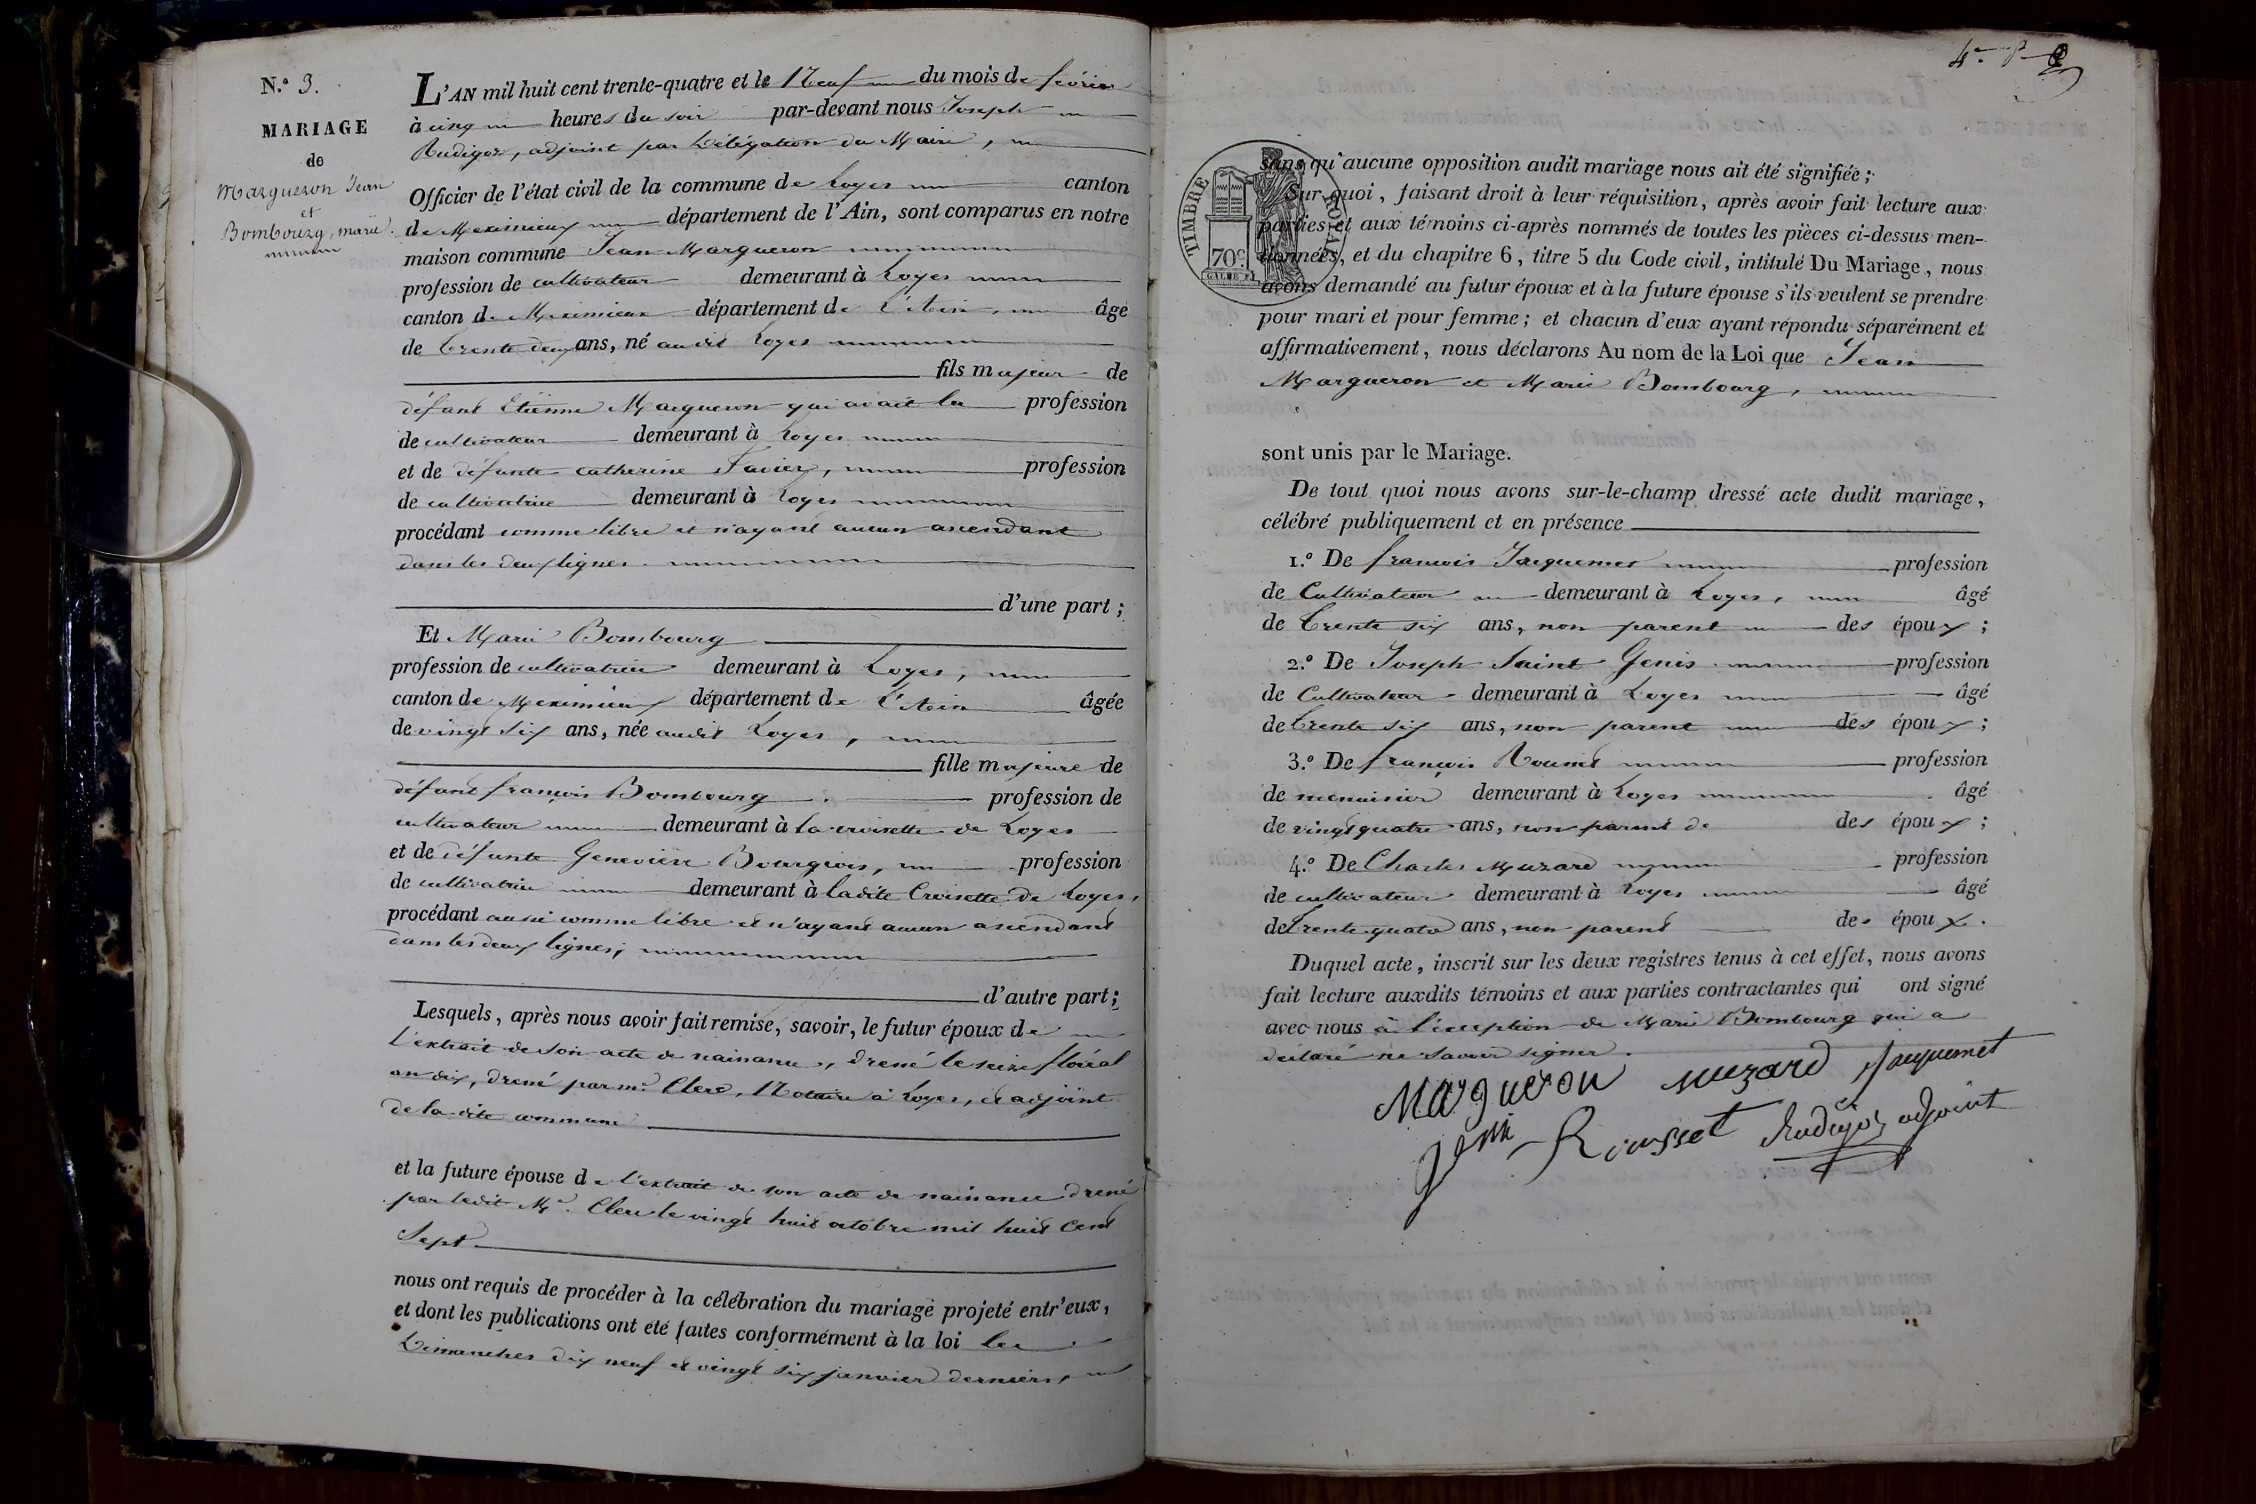 N.º 3.
MARIAGE
de
Margueron Jean
et
Bombourg, marie.
L'AN mil huit cent trente-quatre et le Neuf du mois de février
à cinq heures du soir par-devant nous Joseph
Rudigoz, adjoint par Délégation du Maire,
Officier de l'état civil de la commune de Loyes canton
de Meximieux département de l'Ain, sont comparus en notre
maison commune Jean Margueron
profession de cultivateur demeurant à Loyes
canton de Meximieux département de l'Ain, âgé
de trente deux ans, né audit Loyes
fils majeur de
défunt Etienne Margueron qui avait la profession
de cultivateur demeurant à Loyes
et de défunte catherine profession
de cultivatrice demeurant à Loyes
procédant comme libre et n'ayant aucun ascendant
dans les deux lignes.
d'une part ;
Et Marie Bombourg
profession de cultivatrice demeurant à Loyes,
canton de Meximieux département de l'Ain âgée
de vingt six ans, née audit Loyes,
fille majeure de
défunt françois Bombourg profession de
cultivateur demeurant à la croisette de Loyes
et de défunte Geneviève Bourgeois, profession
de cultivatrice demeurant à ladite Croisette de Loyes,
procédant aussi comme libre et n'ayant aucun ascendant
dans les deux lignes;
d'autre part ;
Lesquels, après nous avoir fait remise, savoir, le futur époux de
l'extrait de son acte de naissance, dressé le seize floréal
an dix, dressé par mr. Clerc, Notaire à Loyes, et adjoint
de la dite commune
et la future épouse de l'extrait de son acte de naissance dressé
par ledit Mr. Clerc le vingt huit octobre mil huit cent
Sept.
nous ont requis de procéder à la célébration du mariage projeté entr'eux,
et dont les publications ont été faites conformément à la loi les
Dimanches dix neuf et vingt six janvier derniers,
TIMBRE ROYAL
70c.
sans qu'aucune opposition audit mariage nous ait été signifiée ;
Sur quoi, faisant droit à leur réquisition, après avoir fait lecture aux
parties et aux témoins ci-après nommés de toutes les pièces ci-dessus men-
tionnées, et du chapitre 6, titre 5 du Code civil, intitulé Du Mariage, nous
avons demandé au futur époux et à la future épouse s'ils veulent se prendre
pour mari et pour femme ; et chacun d'eux ayant répondu séparément et
affirmativement, nous déclarons Au nom de la Loi que Jean
Margueron et Marie Bombourg,
sont unis par le Mariage.
De tout quoi nous avons sur-le-champ dressé acte dudit mariage,
célébré publiquement et en présence
1.º De françois Jacquemet profession
de Cultivateur demeurant à Loyes, âgé
de trente six ans, non parent des époux ;
2.º De Joseph Saint Genis profession
de Cultivateur demeurant à Loyes âgé
de trente six ans, non parent des époux ;
3.º De françois Rousset profession
de menuisier demeurant à Loyes âgé
de vingt quatre ans, non parent de des époux ;
4.º De Charles Muzard profession
de cultivateur demeurant à Loyes âgé
de trente quatre ans, non parent des époux.
Duquel acte, inscrit sur les deux registres tenus à cet effet, nous avons
fait lecture auxdits témoins et aux parties contractantes qui ont signé
avec nous à l'exception de Marie Bombourg qui a
déclaré ne savoir signer.
Margueron muzard Jacquemet
Rousset Rudigoz adjoint